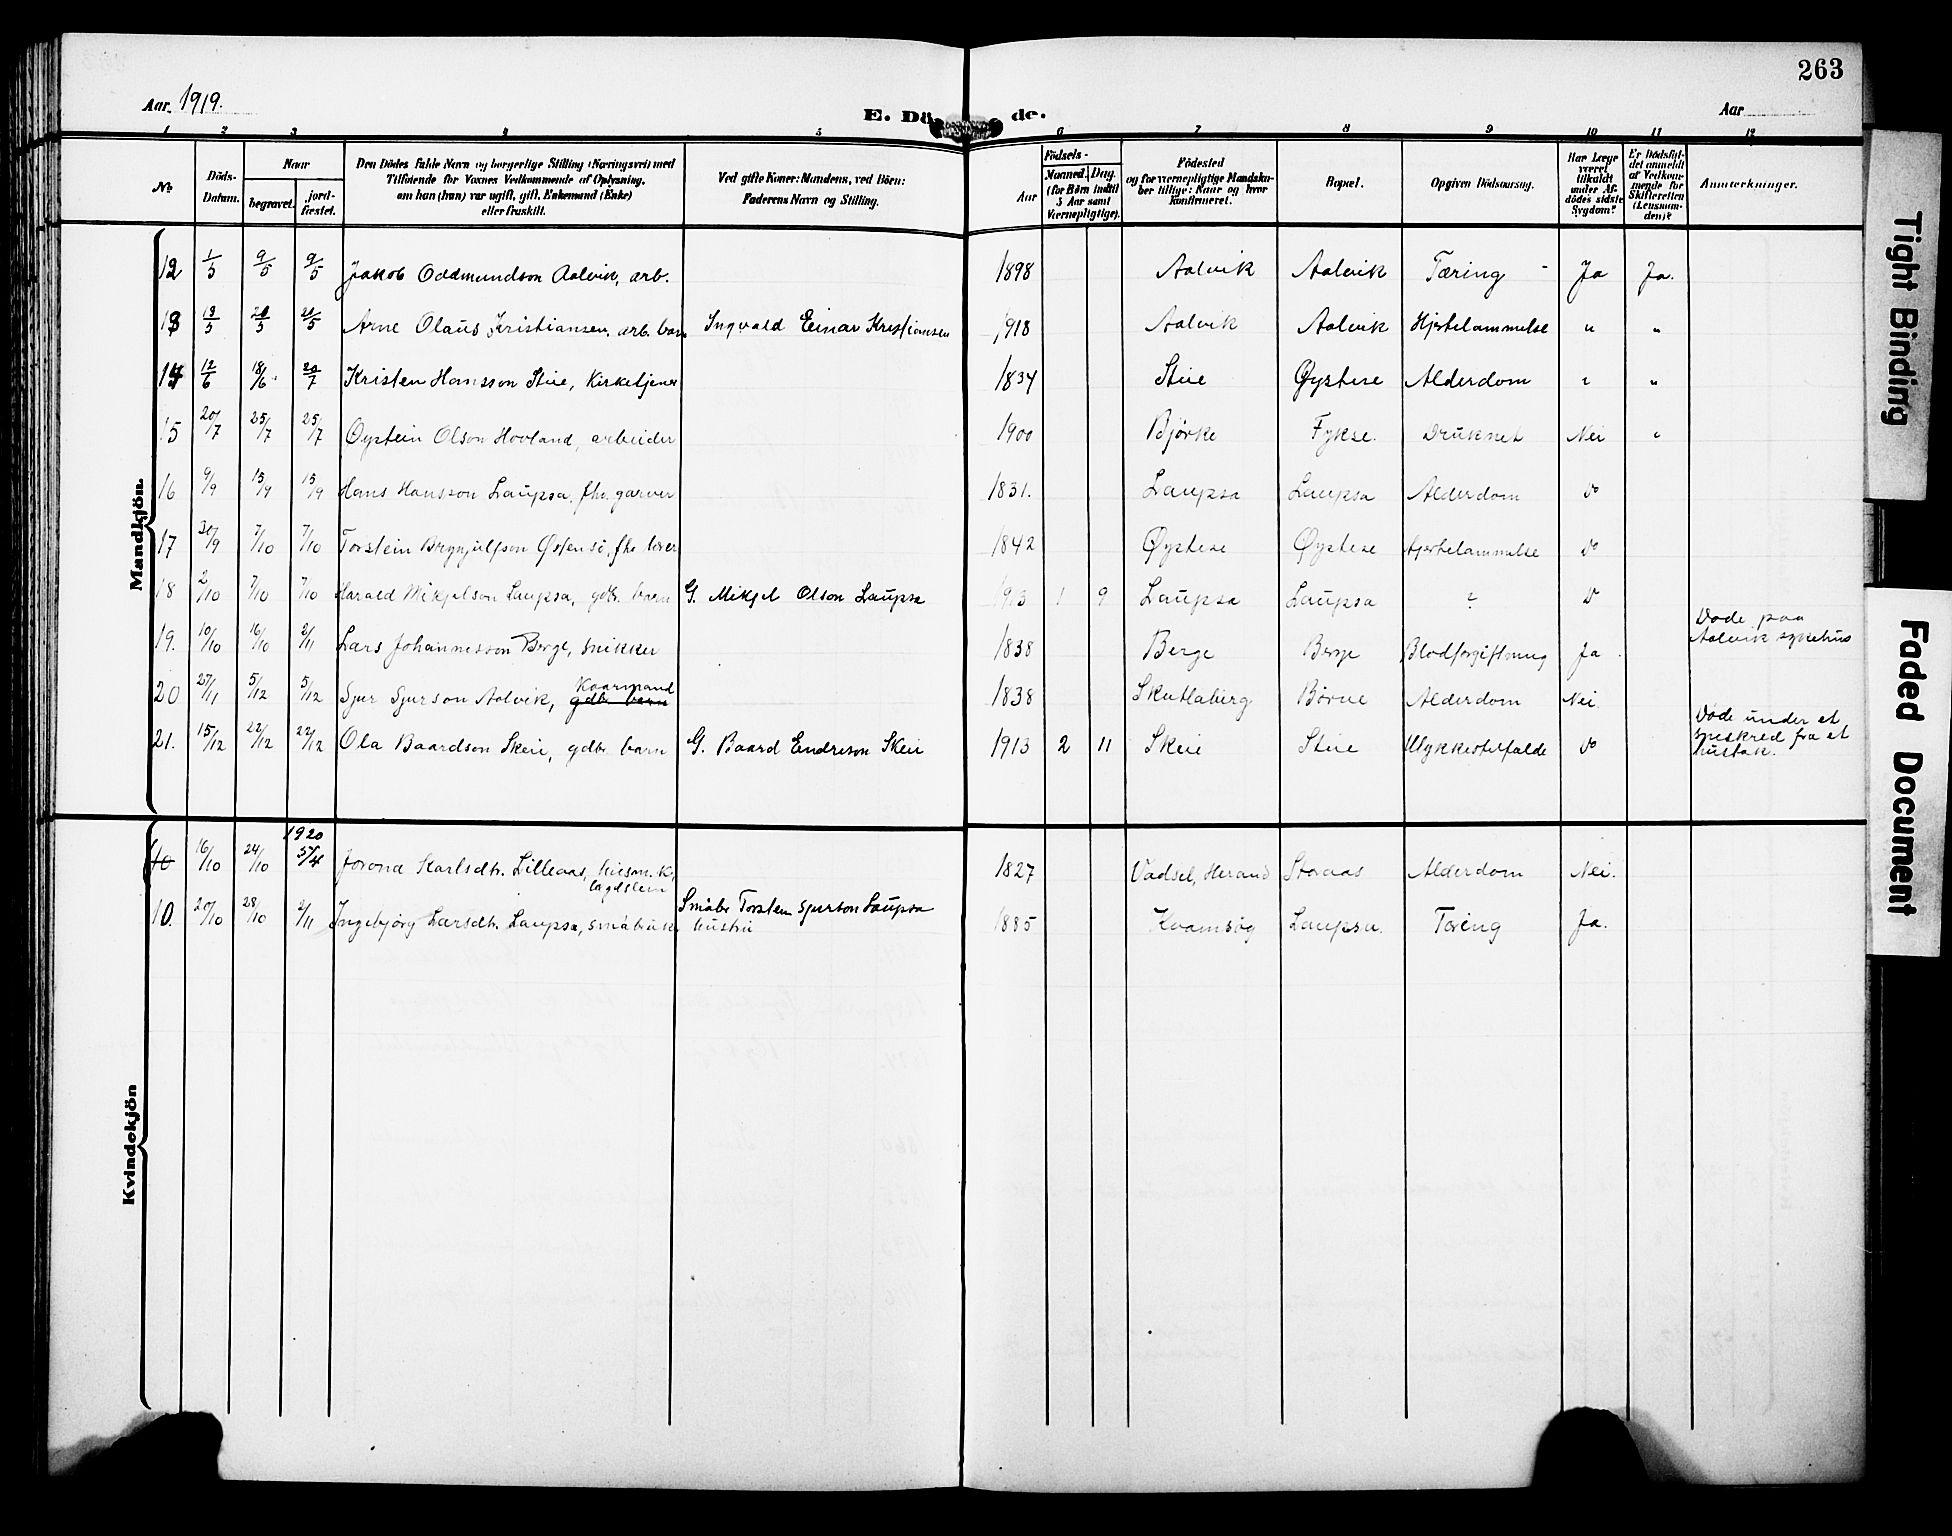 263
Aar. 1919.
E. Dö de.
Aar
1 2 3 4 5 6 7 8 9 10 11 12
No.
Döds-Datum.
Naar
begravet.
jord-fæstet.
Den Dödes fulde Navn og borgerlige Stilling (Næringsvei) med
Tilföiende for Voxnes Vedkommende af Oplysning,
om han (hun) var ugift, gift, Enkemand (Enke)
eller fraskilt.
Ved gifte Koner: Mandens, ved Börn:
Faderens Navn og Stilling.
Födsels-
Aar
Maaned. Dag.
(for Börn indtil 5 Aar samt Værnepligtige).
Födested
og for værnepligtige Mandska-
ber tillige: Naar og hvor
konfirmeret.
Bopæl.
Opgiven Dödsaarsag.
Har Læge været tilkaldt under Af-dödes sidste Sygdom?
Er Dödsfal-det anmeldt af Vedkom-mende for Skifteretten (Lensman-den)?
Anmærkninger.
Mandkjön.
12 1/5 9/5 9/5 Jakob Oddmundson Aalvik, arb. 1898 Aalvik Aalvik Tæring Ja Ja.
13 13/5 20/5 20/5 Arne Olaus Kristiansen, arb. barn Ingvald Einar Kristiansen 1918 Aalvik Aalvik Hjertelammelse " "
14 12/6 18/6 20/7 Kristen Hansson Steie, Kirketjener 1834 Steie Øystese Alderdom " "
15 20/7 25/7 25/7 Øystein Olson Hovland, arbeider 1900 Bjørke Fykse. Druknet Nei "
16 9/9 15/9 15/9 Hans Hansson Laupsa, fhv. garver 1831. Laupsa Laupsa Alderdom do
17 30/9 7/10 7/10 Torstein Brynjulfson Østensö, fhv. lærer 1842 Øystese Øystese Hjertelammelse do
18 2/10 7/10 7/10 Harald Mikjelson Laupsa, gdbr. barn G. Mikjel Olson Laupsa 1913 1 9 Laupsa Laupsa ? do
19. 10/10 16/10 2/11 Lars Johannesson Berge, snikker 1838 Berge Berge Blodforgiftning Ja Døde paa
Aalvik sykehus
20 27/11 5/12 5/12 Sjur Sjurson Aalvik, gdbr. barn Kaarmand 1838 Skutlaberg Børve Alderdom Nei.
21. 15/12 22/12 22/12 Ola Baardson Skeie, gdbr. barn G. Baard Endreson Skeie 1913 2 11 Skeie Steie Ulykkestilfælde do Døde under et
sneskred fra et
hustak.
Kvindekjön
10 16/10 24/10 1920 5/4 Jorond Karlsdtr. Lilleaas, husm. k, lægdslem 1827 Vadsel, Herand Storaas Alderdom Nei.
10. 20/10 28/10 2/11 Ingebjörg Larsdtr. Laupsa, småbruk. Småbr Torstein Sjurson Laupsa
hustru 1885 Kvamsøy Laupsa. Tæring Ja.
Tight Binding
Faded Document